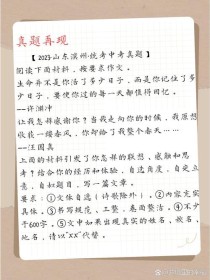 真题再现
【2023·山东滨州·统考中考真题】
阅读下面材料,按要求作文。
生命并不是你活了多少日子,而是你记住了多少日子,要使你过的每一天都值得回忆。
--许渊冲
让我怎样感谢你?当我走向你的时候,我原想收获一缕春风,你却给了我整个春天……
--汪国真
上面的材料引发了你怎样的联想、感触和思考?结合你的经历和体验,自选角度,自定立意,自拟题目,写一篇文章。
要求:①文体自选(诗歌除外);②内容充实具体;③书写规范、工整,卷面整洁;④不少于600字;⑤文中如果出现真实的姓名、校名、地名,请以"XX"代替。